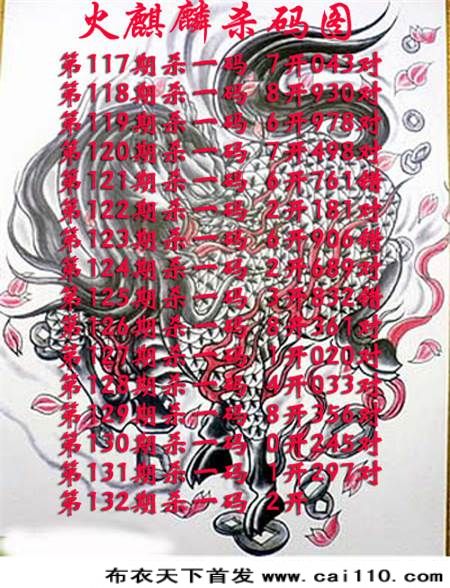 火麒麟杀码图
第117期杀一码 7开043对
第118期杀一码 8开930对
第119期杀一码 6开978对
第120期杀一码 7开498对
第121期杀一码 6开761错
第122期杀一码 2开181对
第123期杀一码 6开906错
第124期杀一码 2开689对
第125期杀一码 3开832错
第126期杀一码 8开361对
第127期杀一码 1开020对
第128期杀一码 4开033对
第129期杀一码 8开356对
第130期杀一码 0开245对
第131期杀一码 1开297对
第132期杀一码 2开
布衣天下首发 www.cai110.com